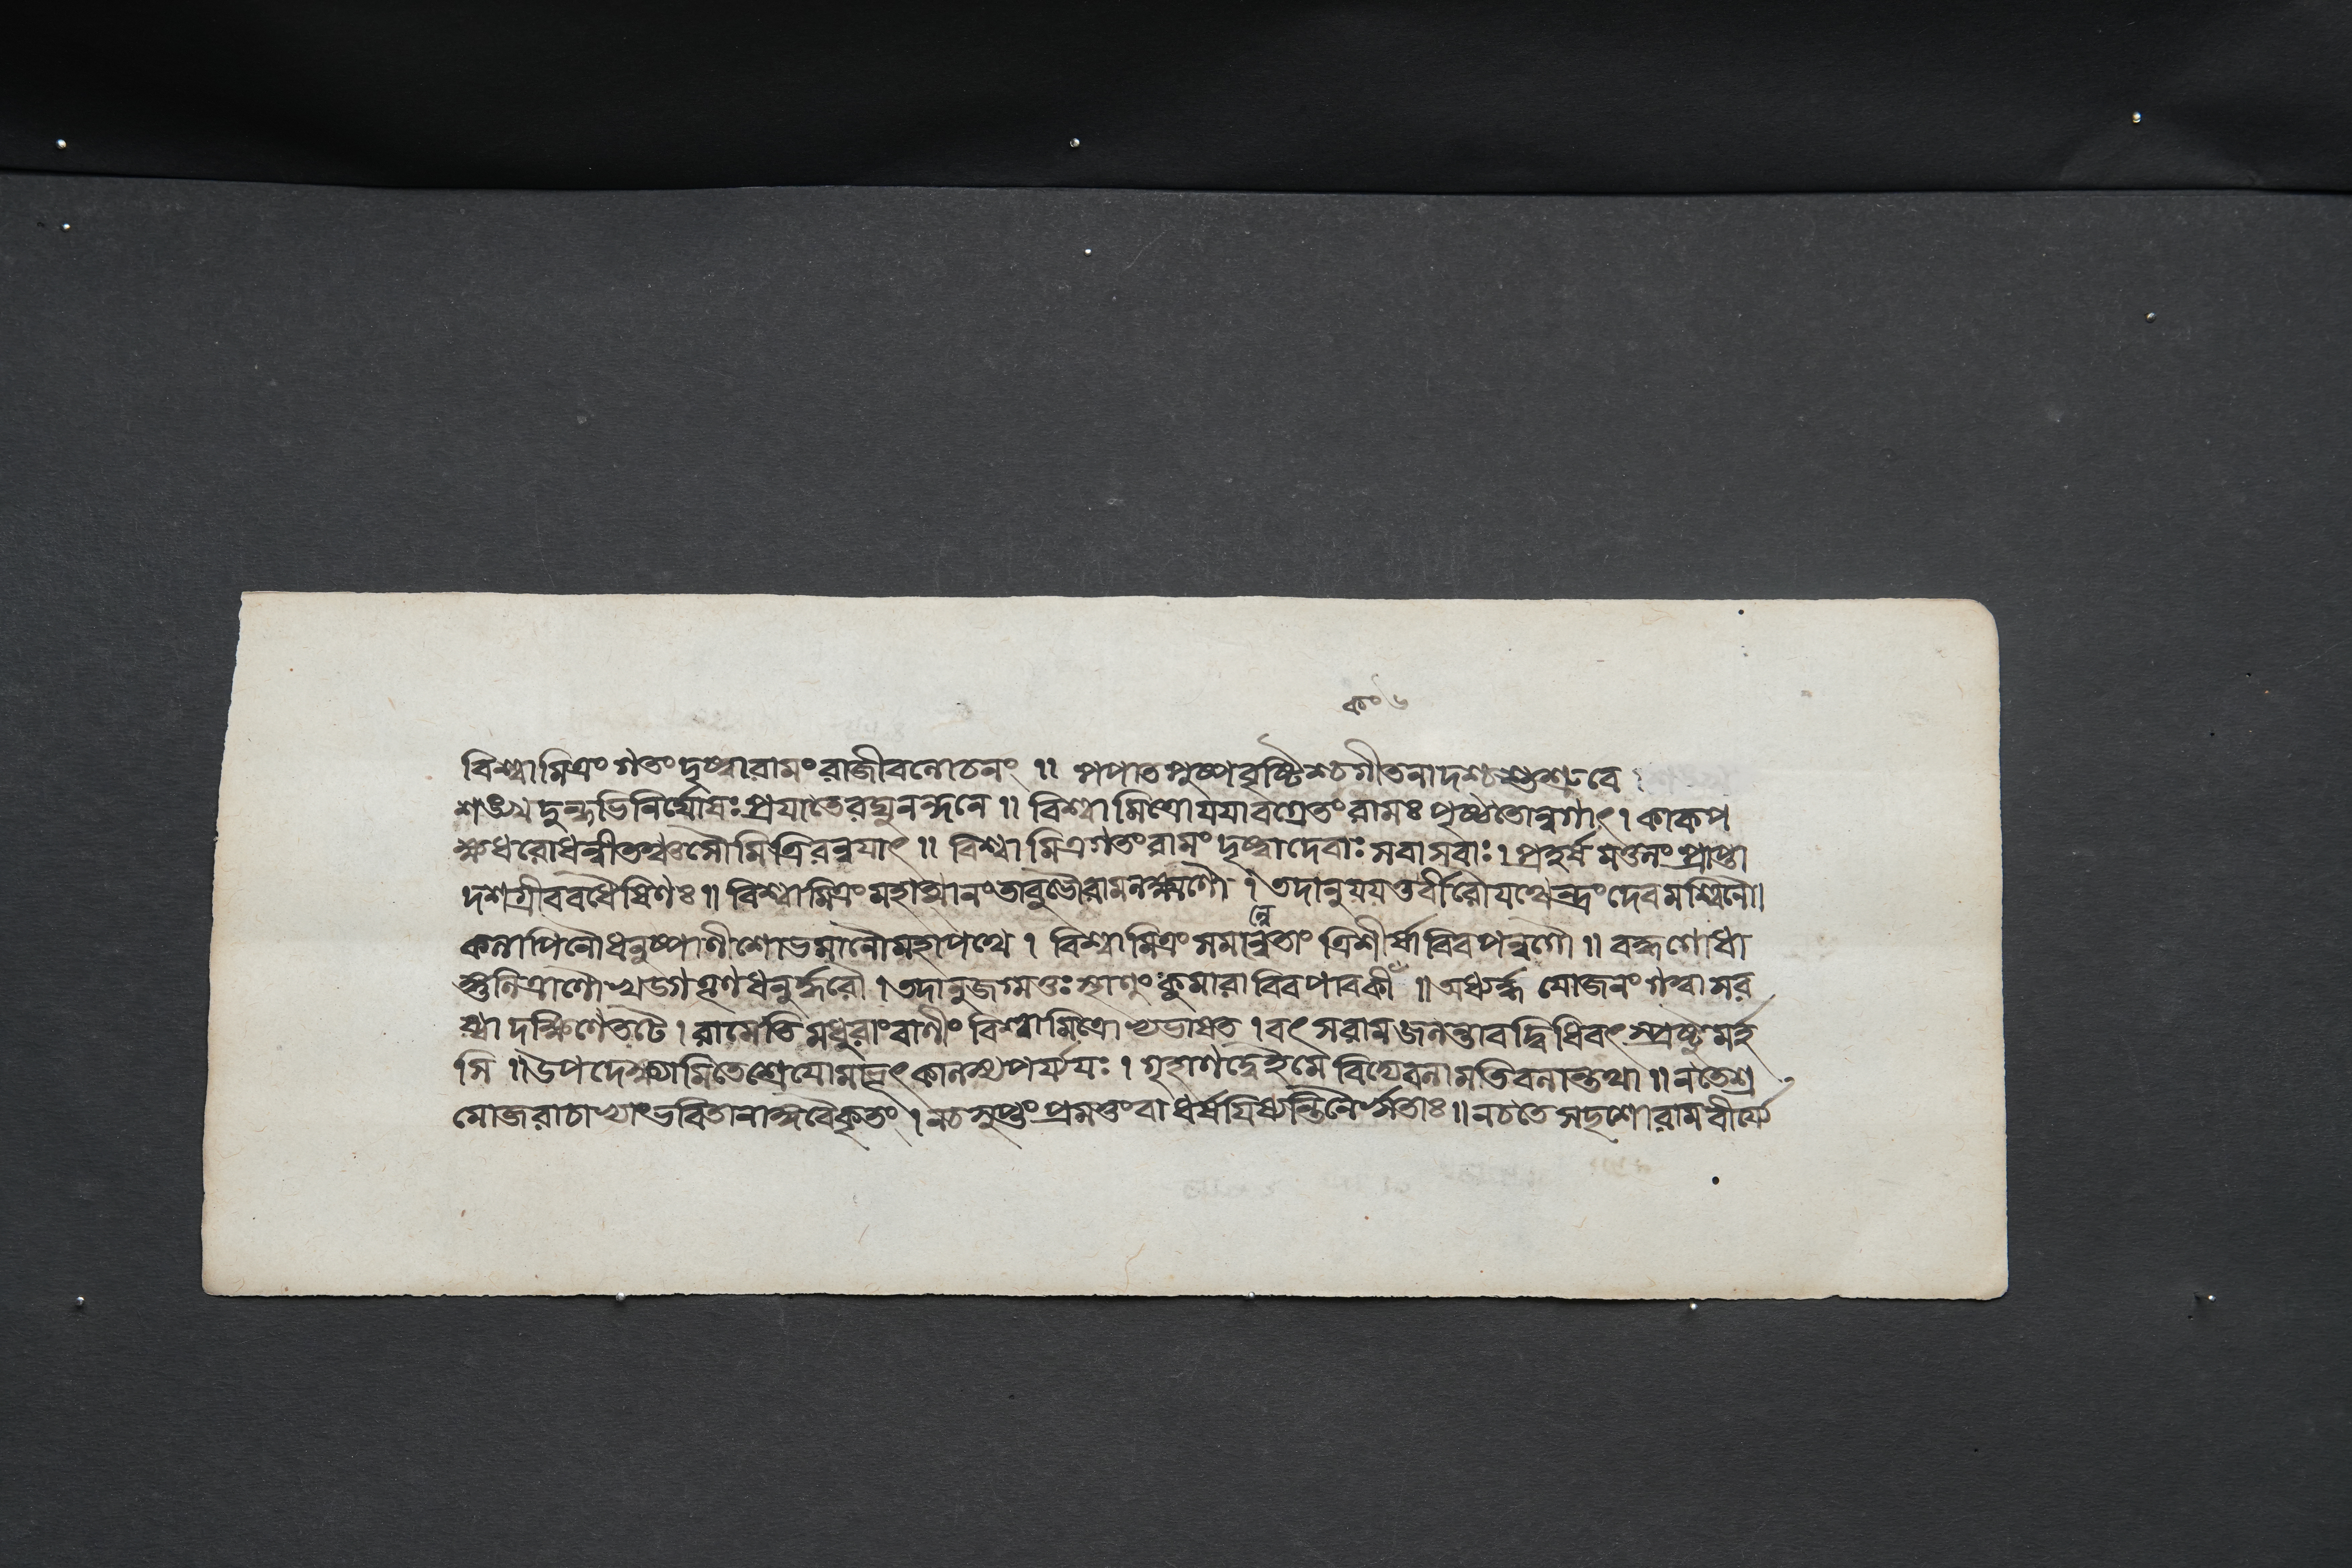 কং ৬
বিশ্বামিত্রং গতং দৃষ্ট্বা রামং রাজীবলোচনং ॥ পপাত পুষ্পবৃষ্টিশ্চ গীতনাদশ্চ শুশ্রুবে ।
শঙ্খদুন্দুভিনির্ঘোষঃ প্রযাতে রঘুনন্দনে ॥ বিশ্বামিত্রো যযাবগ্রেতং রামঃ পৃষ্ঠতোন্বগাৎ । কাকপ
ক্ষধরো ধন্বী তঞ্চ সৌমিত্রিরন্বযাৎ ॥ বিশ্বামিত্রগতং রামং দৃষ্ট্বা দেবাঃ সবাসবাঃ । প্রহর্ষমতুলং প্রাপ্তা
দশগ্রীববধৈষিণঃ ॥ বিশ্বামিত্রং মহাত্মানং তাবুভৌ রামলক্ষ্মণৌ । তদানুযযতুর্বীরৌ যথেন্দ্রং দেবমশ্বিনৌ।
কলাপিনৌ ধনুষ্পাণী শোভমানৌ মহাপথে । বিশ্বামিত্রং সমান্বেতাং ত্রিশীর্ষাবিব পন্নগৌ ॥ বদ্ধগোধা
ঙ্গুলিত্রাণৌ খড্গতূণধনুর্দ্ধরৌ । তদানুজগ্মতুঃ স্থাণুং কুমারাবিব পাবকী ॥ অধ্যর্দ্ধযোজনং গত্বা সর
য্বা দক্ষিণে তটে । রামেতি মধুরাং বাণীং বিশ্বামিত্রোভ্যভাষত । বৎস রাম জলন্তাবদ্বিধিবৎ স্প্রষ্টুমর্হ
সি ॥ উপদেক্ষ্যামি তে শ্রেযো মাভূৎ কালস্য পর্য্যযঃ । গৃহাণ দ্বে ইমে বিদ্যে বলামতিবলান্তথা ॥ ন তে শ্র
মো জরা চাভ্যাং ভবিতা নাঙ্গবৈকৃতং । ন চ সুপ্তং প্রমত্তং বা ধর্ষযিষ্যন্তি নৈর্ঋতাঃ ॥ ন চ তে সদৃশো রাম বীর্য্যে